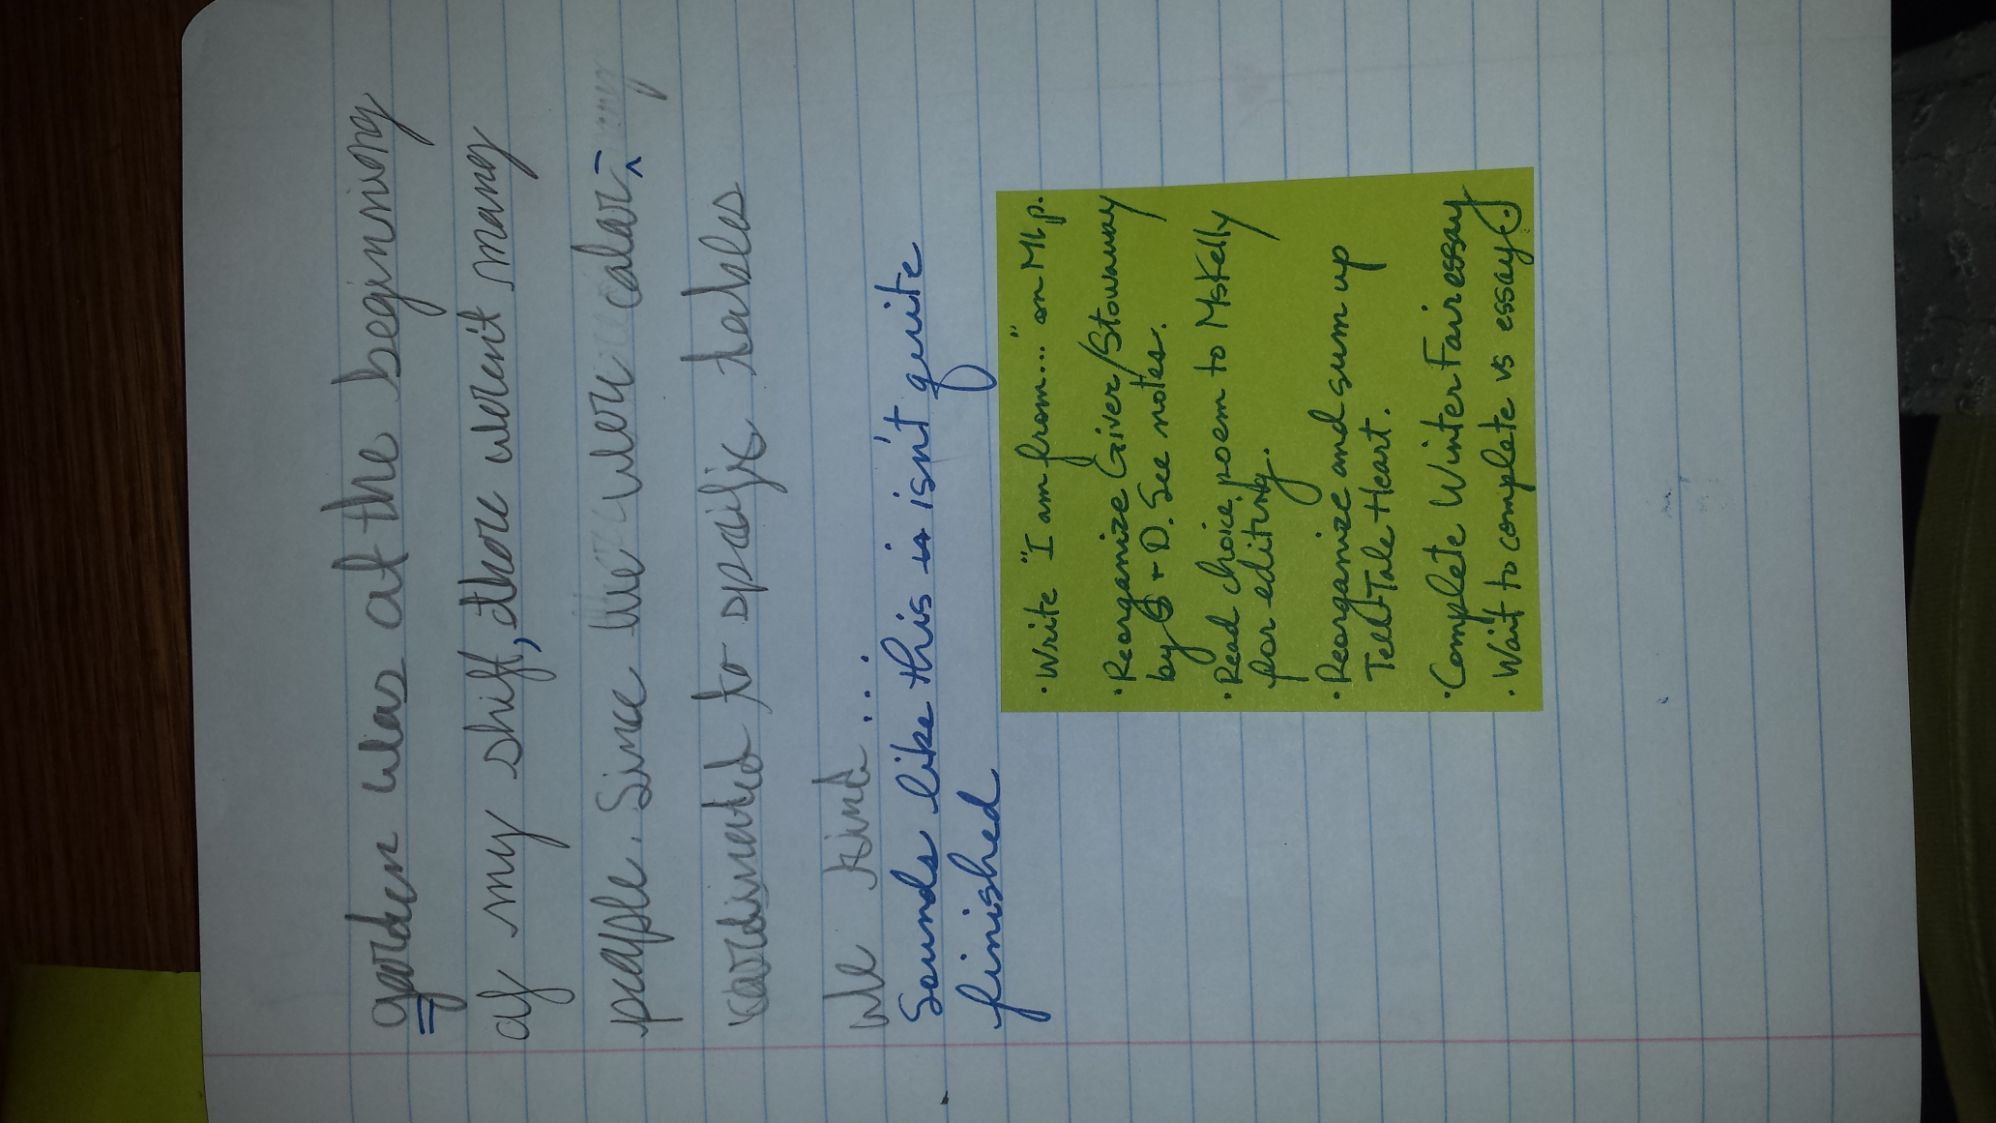 garden was at the beginning
of my shift, there weren't many
people. Since we were calar-
cordinated to spacific tables
we kind....
Sounds like this is isn't quite
finished
• Write "I am from..." on Ml p.
• Reorganize Giver/Stowaway
by S + D. See notes.
• Read choice poem to Ms Kelly
for editing.
• Reorganize and sum up
Tell-Tale Heart.
• Complete Winter Fair essay
• Wait to complete vs essay